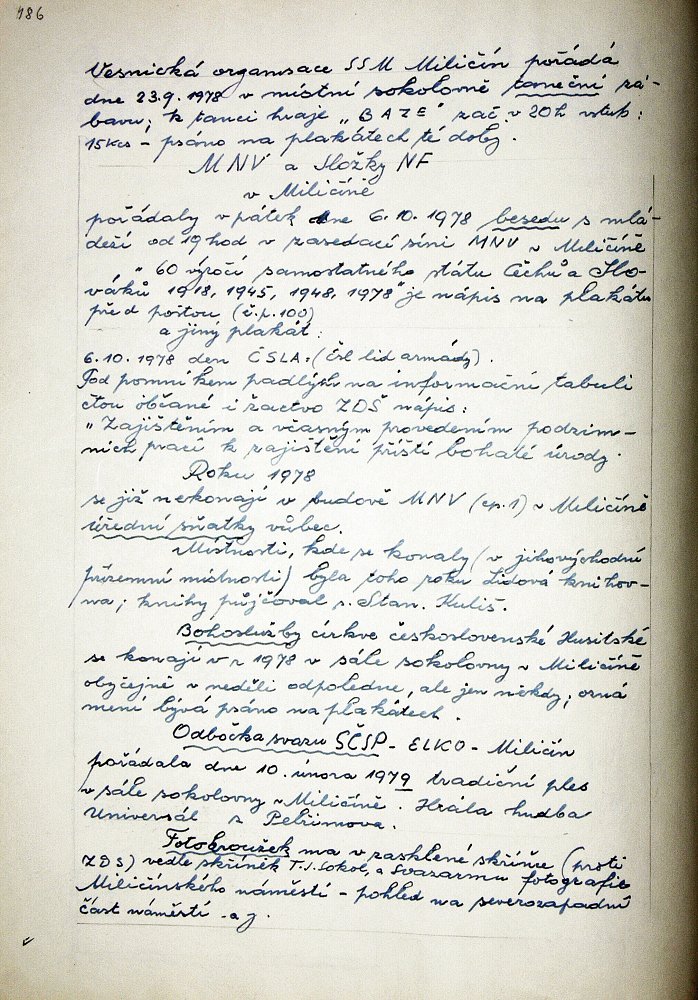 186
Vesnická organisace SSM Miličín pořádá
dne 23.9.1978 v místní sokolovně taneční zá-
bavu; k tanci hraje „BAZE" zač. v 20h vstup:
15 Kčs - psáno na plakátech té doby.
MNV a složky NF
v Miličíně
pořádaly v pátek dne 6.10.1978 besedu s mlá-
deží od 19 hod v zasedací síni MNV v Miličíně
„60 výročí samostatného státu Čechů a Slo-
váků 1918, 1945, 1948, 1978" je nápis na plakátu
před poštou (č.p.100)
a jiný plakát:
6.10.1978 den ČSLA: (Čsl lid armády).
Pod pomníkem padlých na informační tabuli
čtou občané i žactvo ZDŠ nápis:
„Zajištěním a včasným provedením podzim-
ních prací k zajištění příští bohaté úrody.
Roku 1978
se již nekonají v budově MNV (čp.1) v Miličíně
úřední sňatky vůbec.
Místnosti, kde se konaly (v jihovýchodní
přízemní místnosti) byla toho roku Lidová knihov-
na; knihy půjčoval s. Stan. Kuliš.
Bohoslužby církve československé Husitské
se konají v r 1978 v sále sokolovny v Miličíně
obyčejně v neděli odpoledne, ale jen někdy; ozná
mení bývá psáno na plakátech.
Odbočka svazu SČSP - ELKO - Miličín
pořádala dne 10. února 1979 tradiční ples
v sále sokolovny v Miličíně. Hrála hudba
Universál z Pelhřimova.
Fotokroužek má v zasklené skříňce (proti
ZDŠ) vedle skříněk T.J. Sokol, a Svazarmu fotografie
Miličínského náměstí - pohled na severozapadní
část náměstí - a j.